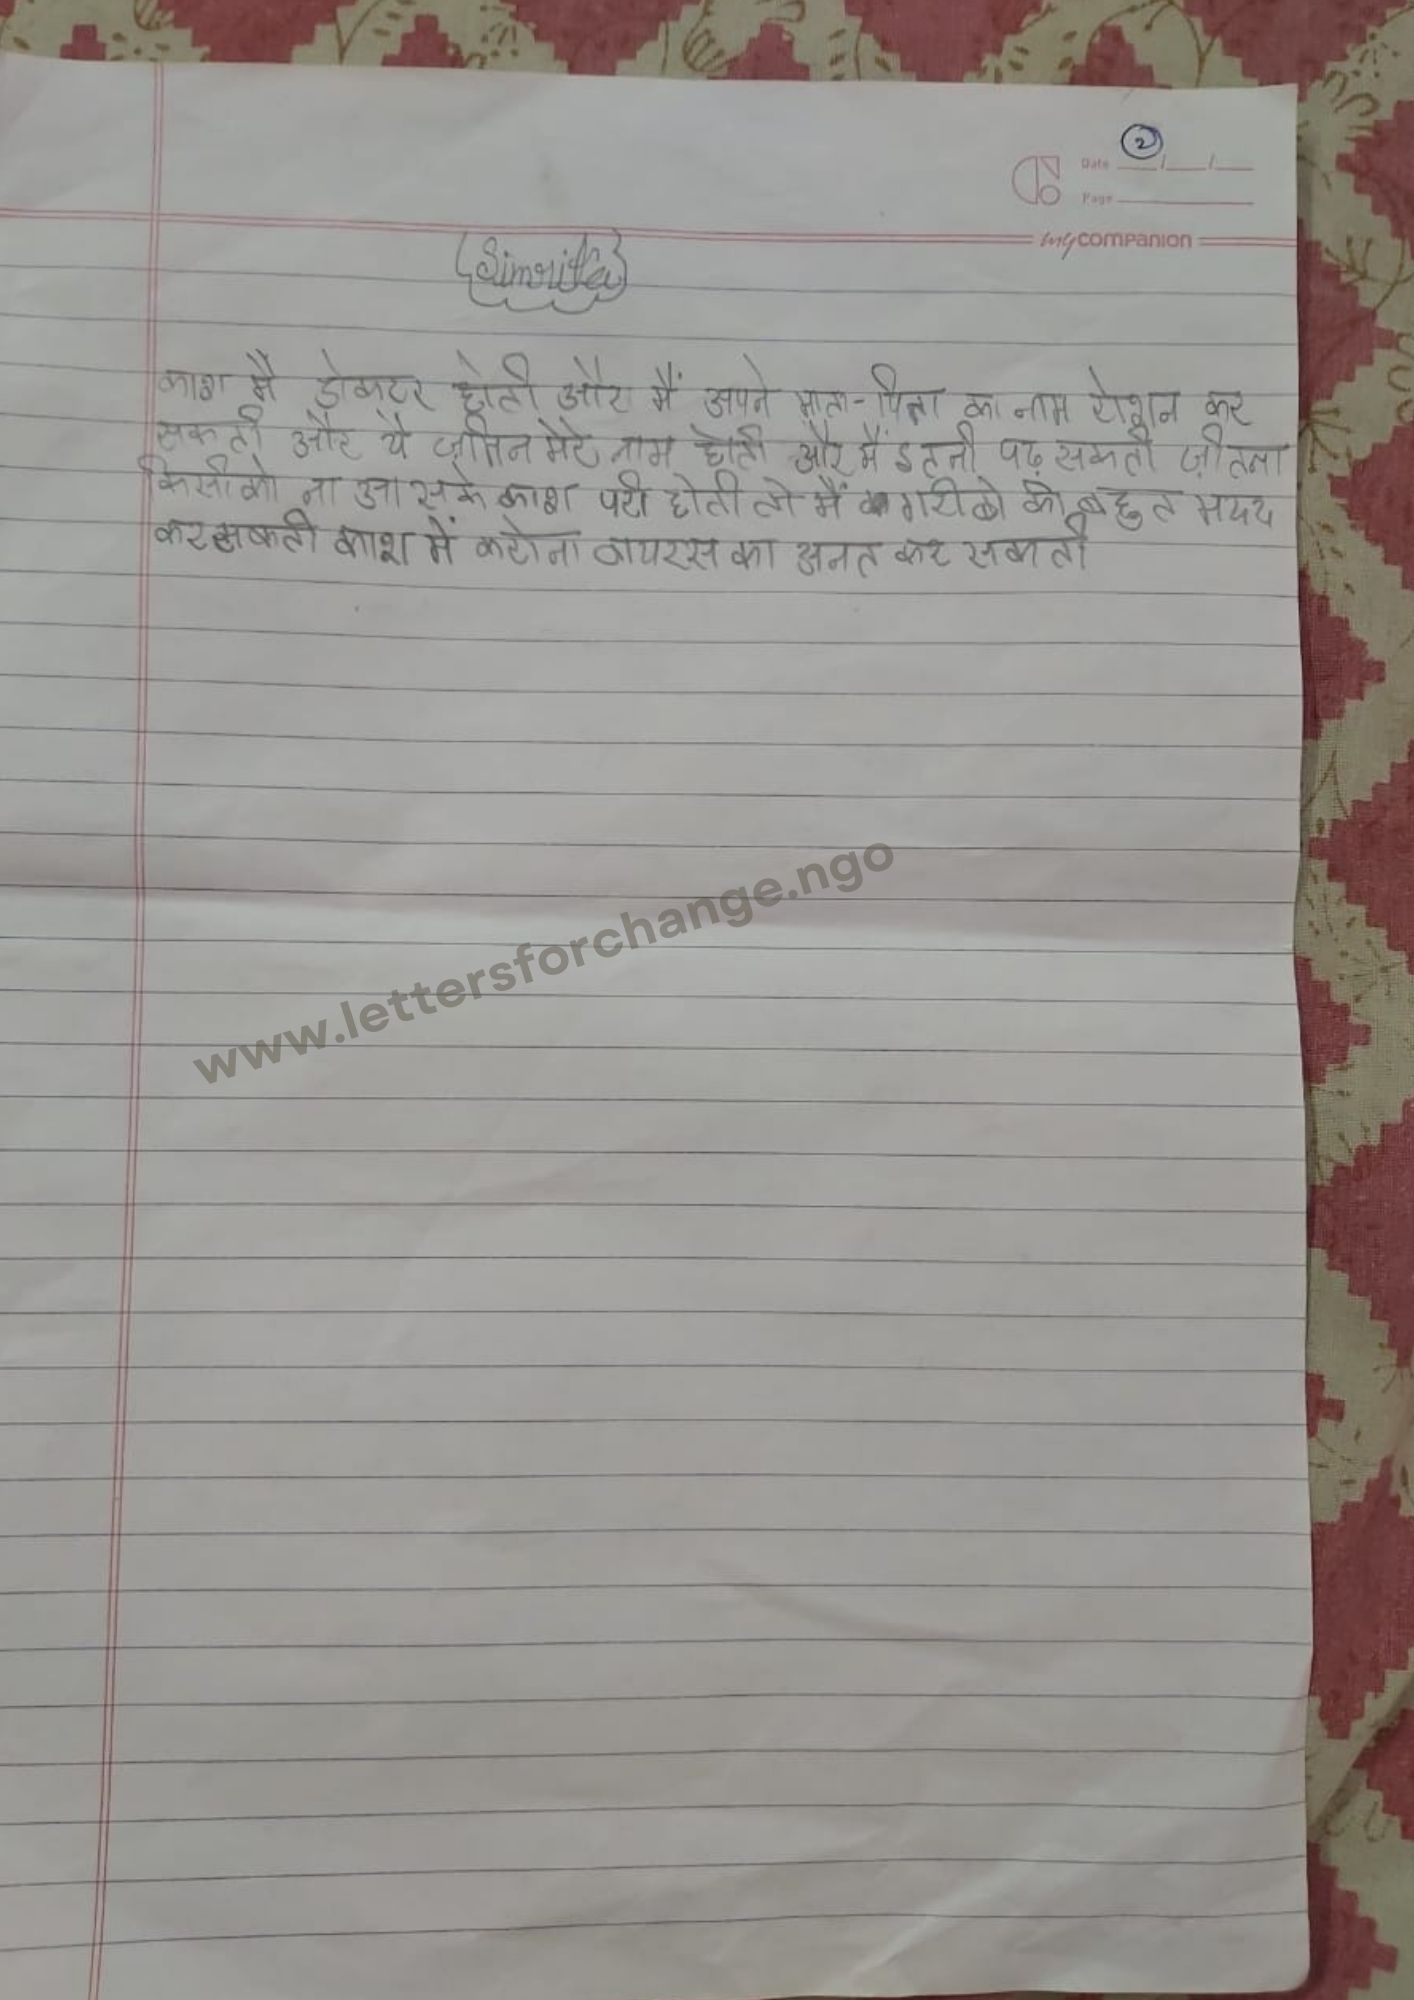 2
Date
Page
mycompanion
Simrita
काश मै डोकटर होती और मैं अपने माता-पिता का नाम रोशन कर
सकती और ये ज़मिन मेरे नाम होती और मैं इतनी पढ़ सकती ज़ीतना
किसीको ना आ सके काश परी होती तो मैं गरीबो की बहुत मदद
कर सकती काश में करोना वायरस का अनत कर सकती
www.lettersforchange.ngo